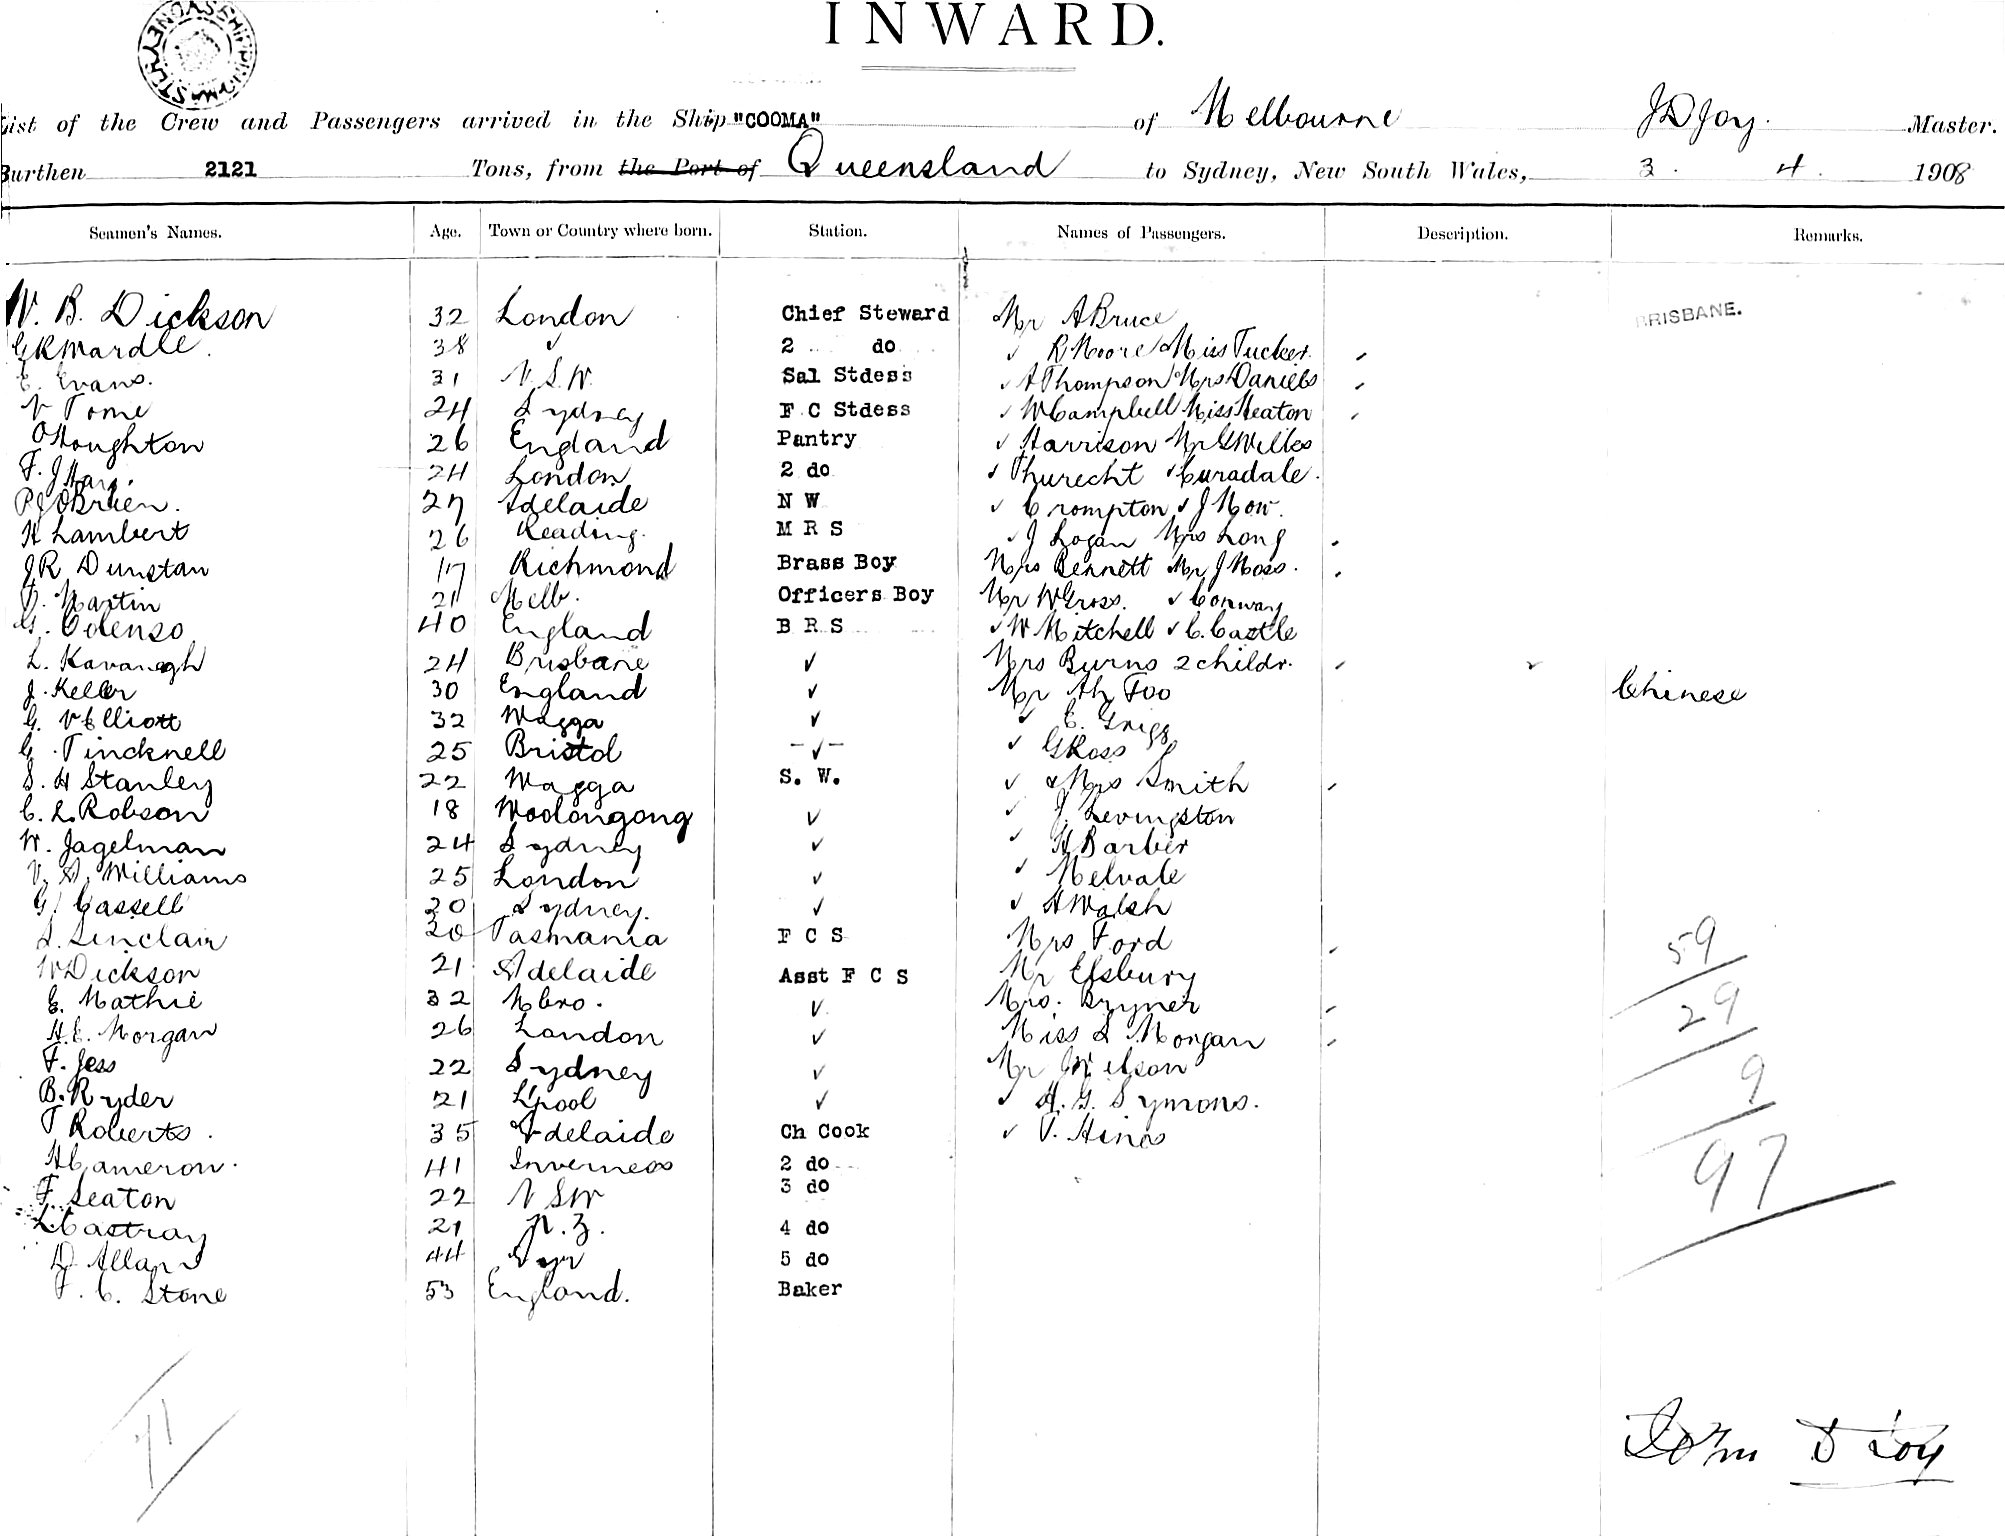 SYDNEY SHIPPING MASTER
INWARD.
List of the Crew and Passengers arrived in the Ship "COOMA" of Melbourne J D Joy. Master.
Burthen 2121 Tons, from the Port of Queensland to Sydney, New South Wales, 3. 4. 1908
Seamen's Names. Age. Town or Country where born. Station. Names of Passengers. Description. Remarks.
W. B. Dickson 32 London Chief Steward Mr A Bruce BRISBANE.
G R Wardle. 38 ✓ 2 do ✓ R Moore Miss Tucker.
E. Evans. 31 N. S. W. Sal Stdess ✓ A Thompson Mrs Daniels
V Tome 24 Sydney F C Stdess ✓ W Campbell Miss Heaton
O Houghton 26 England Pantry ✓ Harrison Mr G Willes
F. J 24 London 2 do ✓ Thurecht ✓ Curadale.
P J OBrien. 27 Adelaide N W ✓ Crompton ✓ J Mow.
H Lambert 26 Reading. M R S ✓ J Logan Mrs Long
J R Dunstan 17 Richmond Brass Boy Mrs Bennett Mr J Moss.
D. Martin 21 Melb. Officers Boy Mr W Gross. ✓ Conway
G. Odenso 40 England B R S ✓ W Mitchell ✓ C. Castle
L. Kavanagh 24 Brisbane ✓ Mrs Burns 2 childr.
J. Keller 30 England ✓ Mr Ah Foo Chinese
G. V Elliott 32 Wagga ✓ ✓ E. Grigg
G. Tincknell 25 Bristol -✓- ✓ G Ross
S. H Stanley 22 Wagga S. W. ✓ & Mrs Smith
C. L. Robson 18 Woolongong ✓ ✓ J. Levingston
W. Jagelman 24 Sydney ✓ ✓ H Barber
V. A. Williams 25 London ✓ ✓ Melvale
G. Cassell 20 Sydney. ✓ ✓ H Walsh
A. Sinclair 20 Tasmania F C S Mrs Ford 59
W Dickson 21 Adelaide Asst F C S Mr Elsbury
E. Mathie 32 Mbro. ✓ Mrs. Bryner 29
H. E. Morgan 26 London ✓ Miss L Morgan
F. Jess 22 Sydney ✓ Mr J Wilson 9
B. Ryder 21 L'pool ✓ ✓ H. G. Symons.
T Roberts. 35 Adelaide Ch Cook ✓ V. Hines
H Cameron. 41 Inverness 2 do 97
F. Seaton 22 N S W 3 do
L Castray 21 N. Z. 4 do
D Allan 44 Ayr 5 do
F. C. Stone 53 England. Baker
71
John D Joy